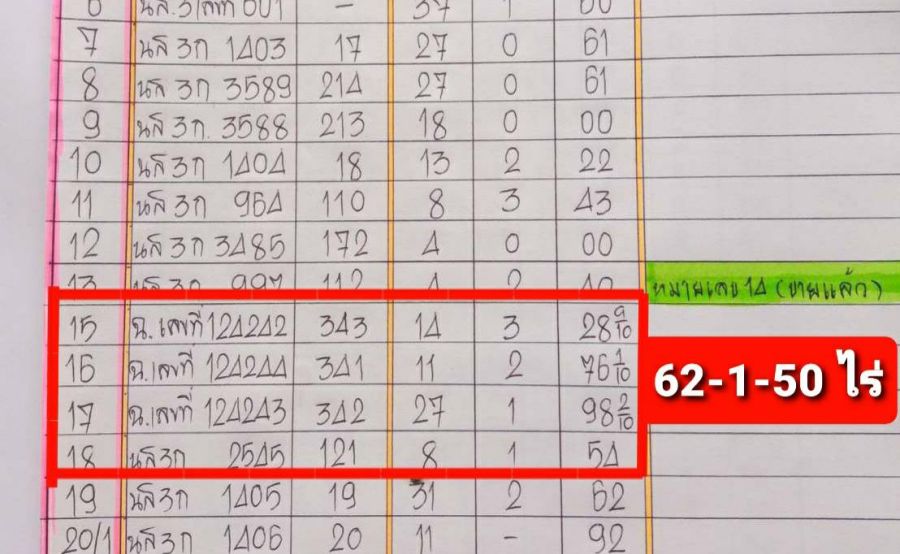 7 นส 3ก 1403 17 27 0 61
8 นส 3ก 3589 214 27 0 61
9 นส 3ก. 3588 213 18 0 00
10 นส 3ก 1404 18 13 2 22
11 นส 3ก 964 110 8 3 43
12 นส 3ก 3485 172 4 0 00
13 นส 3ก 997 112 4 2 40 หมายเลข 14 (ขายแล้ว)
15 ฉ.เลขที่ 124242 343 14 3 28 9/10
16 ฉ.เลขที่ 124244 341 11 2 76 1/10
62-1-50 ไร่
17 ฉ.เลขที่ 124243 342 27 1 98 2/10
18 นส 3ก 2545 121 8 1 54
19 นส 3ก 1405 19 31 2 62
20/1 นส 3ก 1406 20 11 - 92